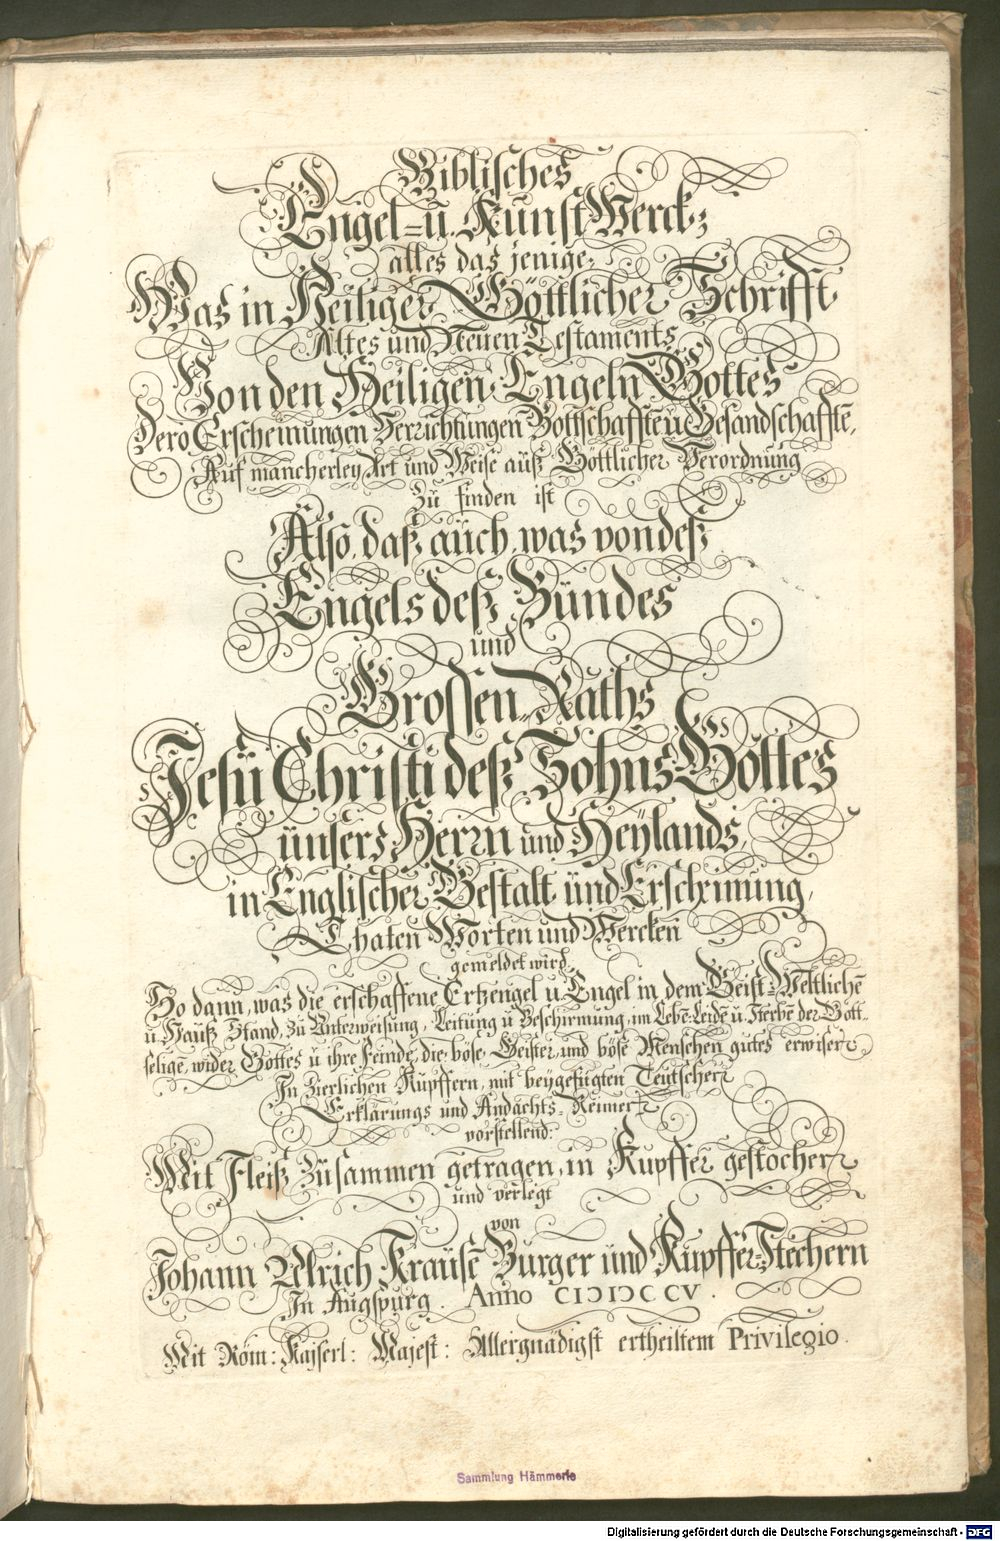 Biblisches
Engel- u. Kunst Werck,
alles das jenige,
Was in Heiliger Göttlicher Schrifft,
Altes und Neuen Testaments,
Von den Heiligen Engeln Gottes
Dero Erscheinungen Verrichtungen Bottschafften u Gesandschafftē,
Auf mancherley Art und Weise auß Göttlicher Verordnung
Zu finden ist
Also, daß auch, was von deß
Engels deß Bundes
und
Grossen Raths
Jesu Christi deß Sohns Gottes
unsers Herrn und Heylands,
in Englischer Gestalt und Erscheinung,
Thaten Worten und Wercken
gemeldet wird,
So dann, was die erschaffene Ertzengel u. Engel in dem Geist- Weltlichē
u. Hauß Stand, zu Unterweisung, Leitung u Beschirmung, im Lebē Leidē u. Sterbē der Gott-
selige, wider Gottes u ihre Feinde, die böse Geister, und böse Menschen gutes erwisen,
In Zierlichen Kupffern, mit beygefügten Teutschen
Erklärungs und Andachts- Reimen
vorstellend:
Mit Fleiß zusammen getragen, in Kupffer gestochen
und verlegt
von
Johann Ulrich Krausē Burger und Kupffer-Stechern
In Augspurg. Anno CIↃIↃCCV.
Mit Röm: Kayserl: Majest: Allergnädigst ertheiltem Privilegio.
Sammlung Hämmerle
Digitalisierung gefördert durch die Deutsche Forschungsgemeinschaft - DFG